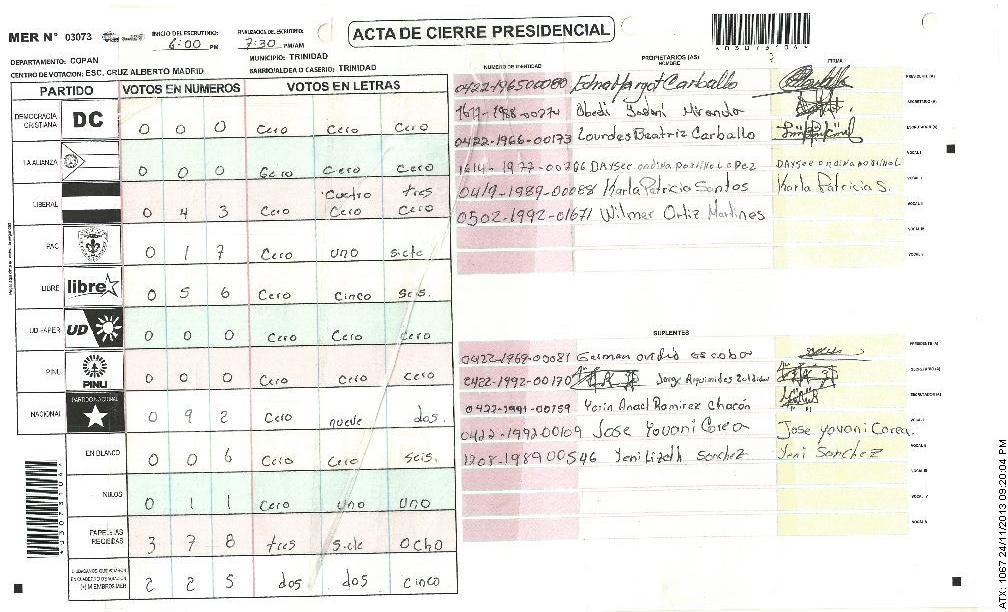 MER N° 03073
INICIO DEL ESCRUTINIO: 6:00 PM
FINALIZACION DEL ESCRUTINIO: 7:30 PM/AM
ACTA DE CIERRE PRESIDENCIAL
DEPARTAMENTO: COPAN
MUNICIPIO: TRINIDAD
CENTRO DE VOTACION: ESC. CRUZ ALBERTO MADRID
BARRIO/ALDEA O CASERIO: TRINIDAD
PARTIDO VOTOS EN NUMEROS VOTOS EN LETRAS
DEMOCRACIA CRISTIANA DC 0 0 0 Cero Cero Cero
LA ALIANZA 0 0 0 Cero Cero Cero
Cuatro tres
LIBERAL 0 4 3 Cero Cero Cero
PAC 0 1 7 Cero uno siete
LIBRE libre 0 5 6 Cero Cinco Seis.
UD-FAPER UD 0 0 0 Cero Cero Cero
PINU PINU 0 0 0 Cero Cero Cero
NACIONAL PARTIDO NACIONAL 0 9 2 Cero nueve dos.
EN BLANCO 0 0 6 Cero Cero Seis.
NULOS 0 1 1 Cero uno uno
PAPELETAS RECIBIDAS 3 7 8 tres siete ocho
CIUDADANOS QUE VOTARON EN CUADERNO DE VOTACION (+) MIEMBROS MER 2 2 5 dos dos cinco
NUMERO DE IDENTIDAD PROPIETARIOS (AS) NOMBRE FIRMA
0422-196500080 Edna Margot Carballo PRESIDENTE (A)
Obedi Yadani Miranda SECRETARIO (A)
0422-1966-00173 Lourdes Beatriz Carballo ESCRUTADOR (A)
1614-1977-00286 DAYSEE ondina PORTILLO LOPEZ DAYSEE ondina PORTILLO L VOCAL I
0419-1989-00088 Karla Patricia Santos Karla Patricia S. VOCAL II
0502-1992-01671 Wilmer Ortiz Martines VOCAL III
VOCAL IV
VOCAL V
SUPLENTES
0422-1969-00081 German ovidio escobar PRESIDENTE (A)
0422-1992-00170 Jorge Arquimides SECRETARIO (A)
0422-1991-00759 Yorin Anael Ramirez Chacón ESCRUTADOR (A)
0422-199200109 Jose Yovani Corea Jose Yovani Corea. VOCAL I
1208-198900546 Yeni Lizeth Sanchez Yeni Sanchez VOCAL II
VOCAL III
VOCAL IV
VOCAL V
ATX: 1067 24/11/2013 09:20:04 PM